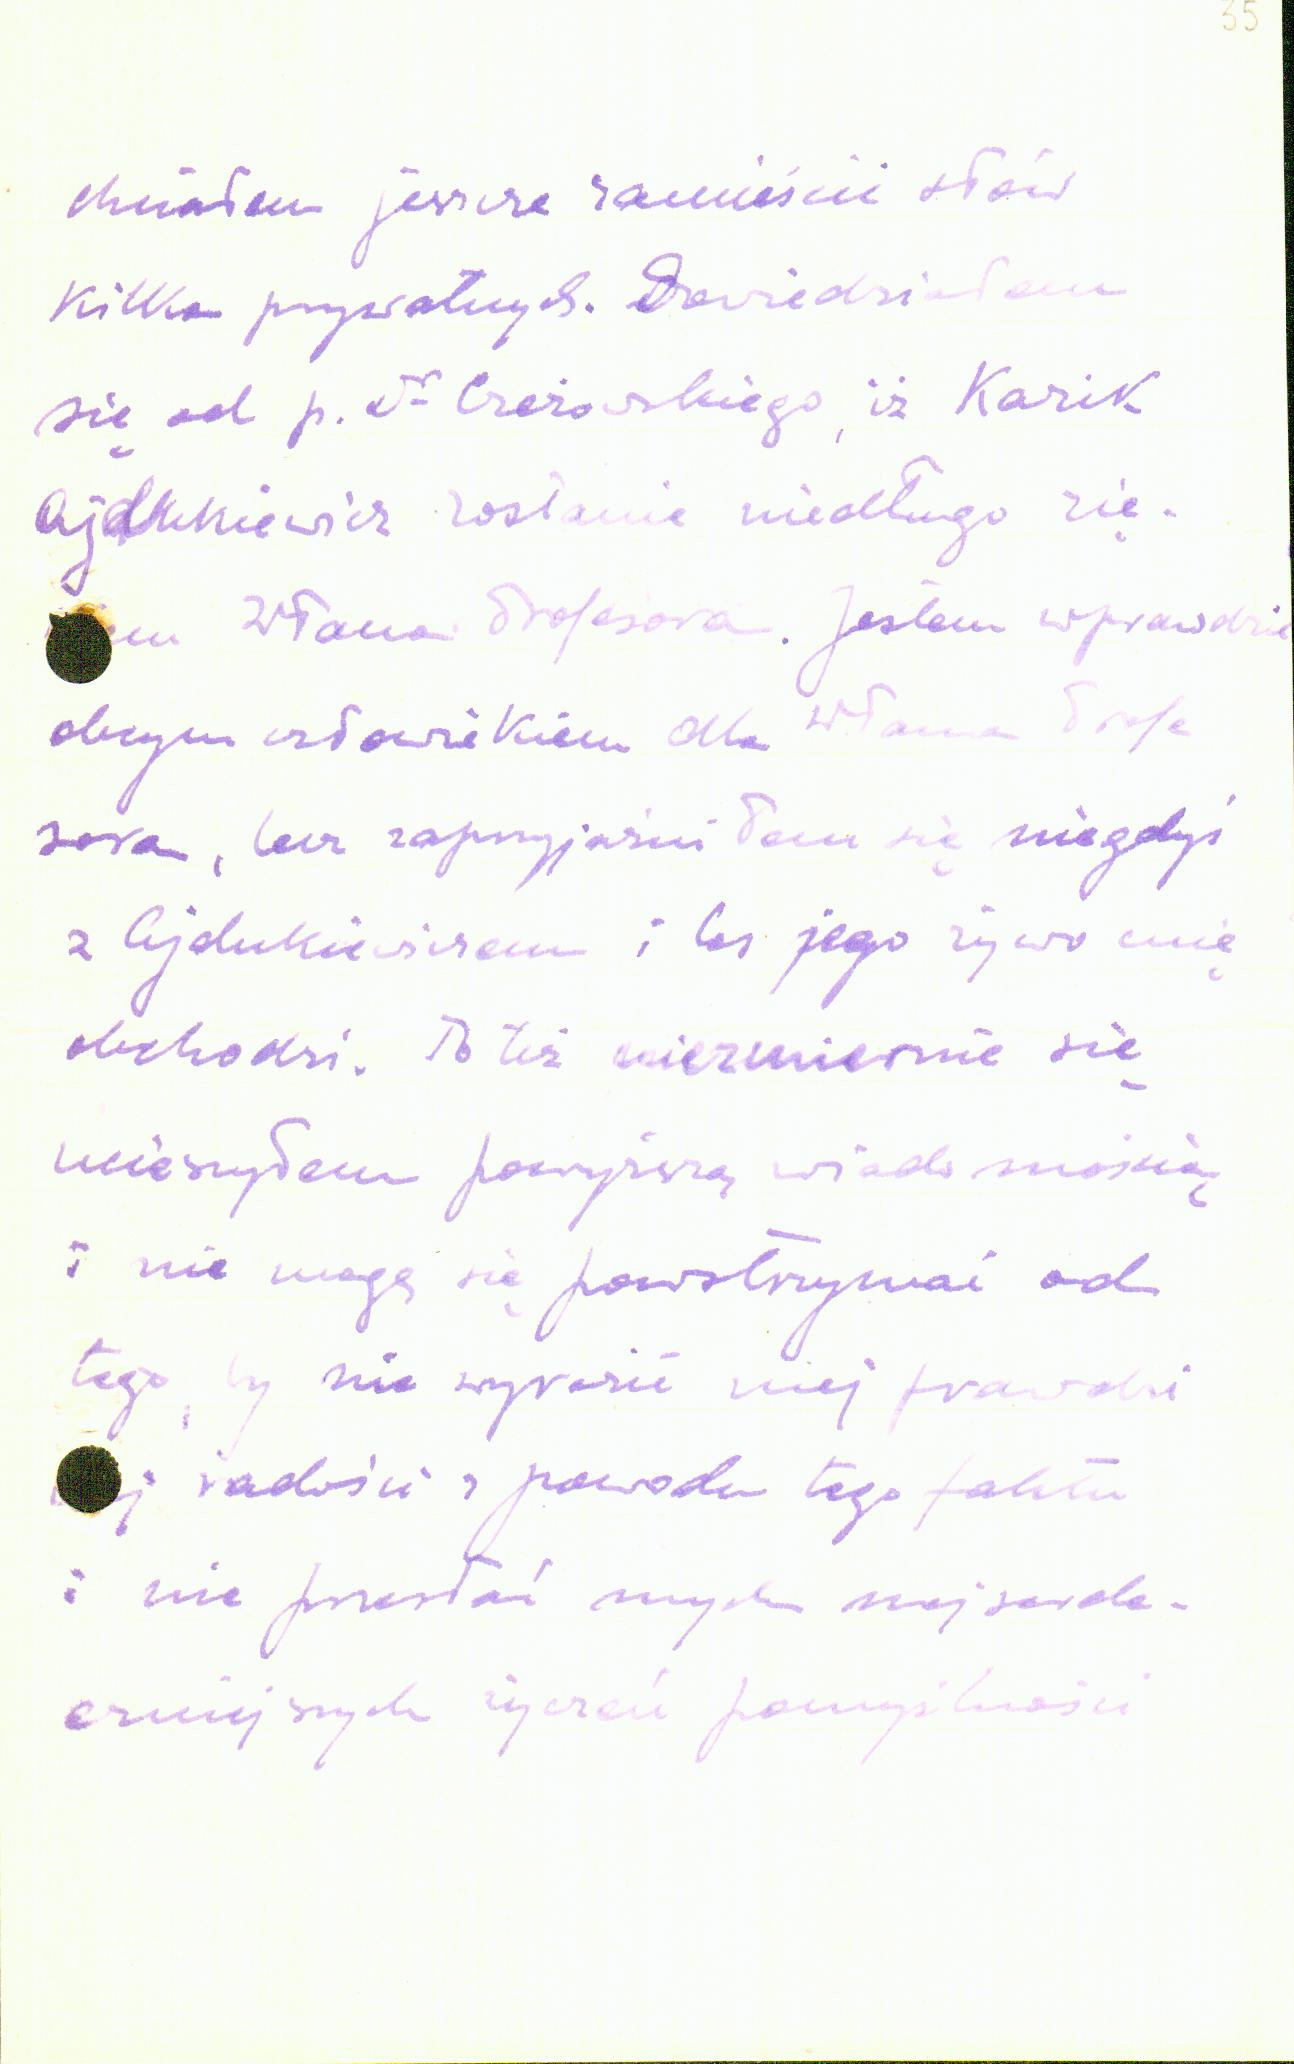 35
chciałem jeszcze zamieścić słów
kilka prywatnych. Dowiedziałem
się od p. dr Czeżowskiego, iż Kazik
Ajdukiewicz zostanie niedługo zię-
ciem WPana Profesora. Jestem wprawdzie
obcym człowiekiem dla WPana Profe
sora, lecz zaprzyjaźniłem się niegdyś
z Ajdukiewiczem i los jego żywo mię
obchodzi. To też niezmiernie się
ucieszyłem powyższą wiadomością
i nie mogę się powstrzymać od
tego, by nie wyrazić mej prawdzi
wej radości z powodu tego faktu
i nie przesłać mych najserde-
czniejszych życzeń pomyślności